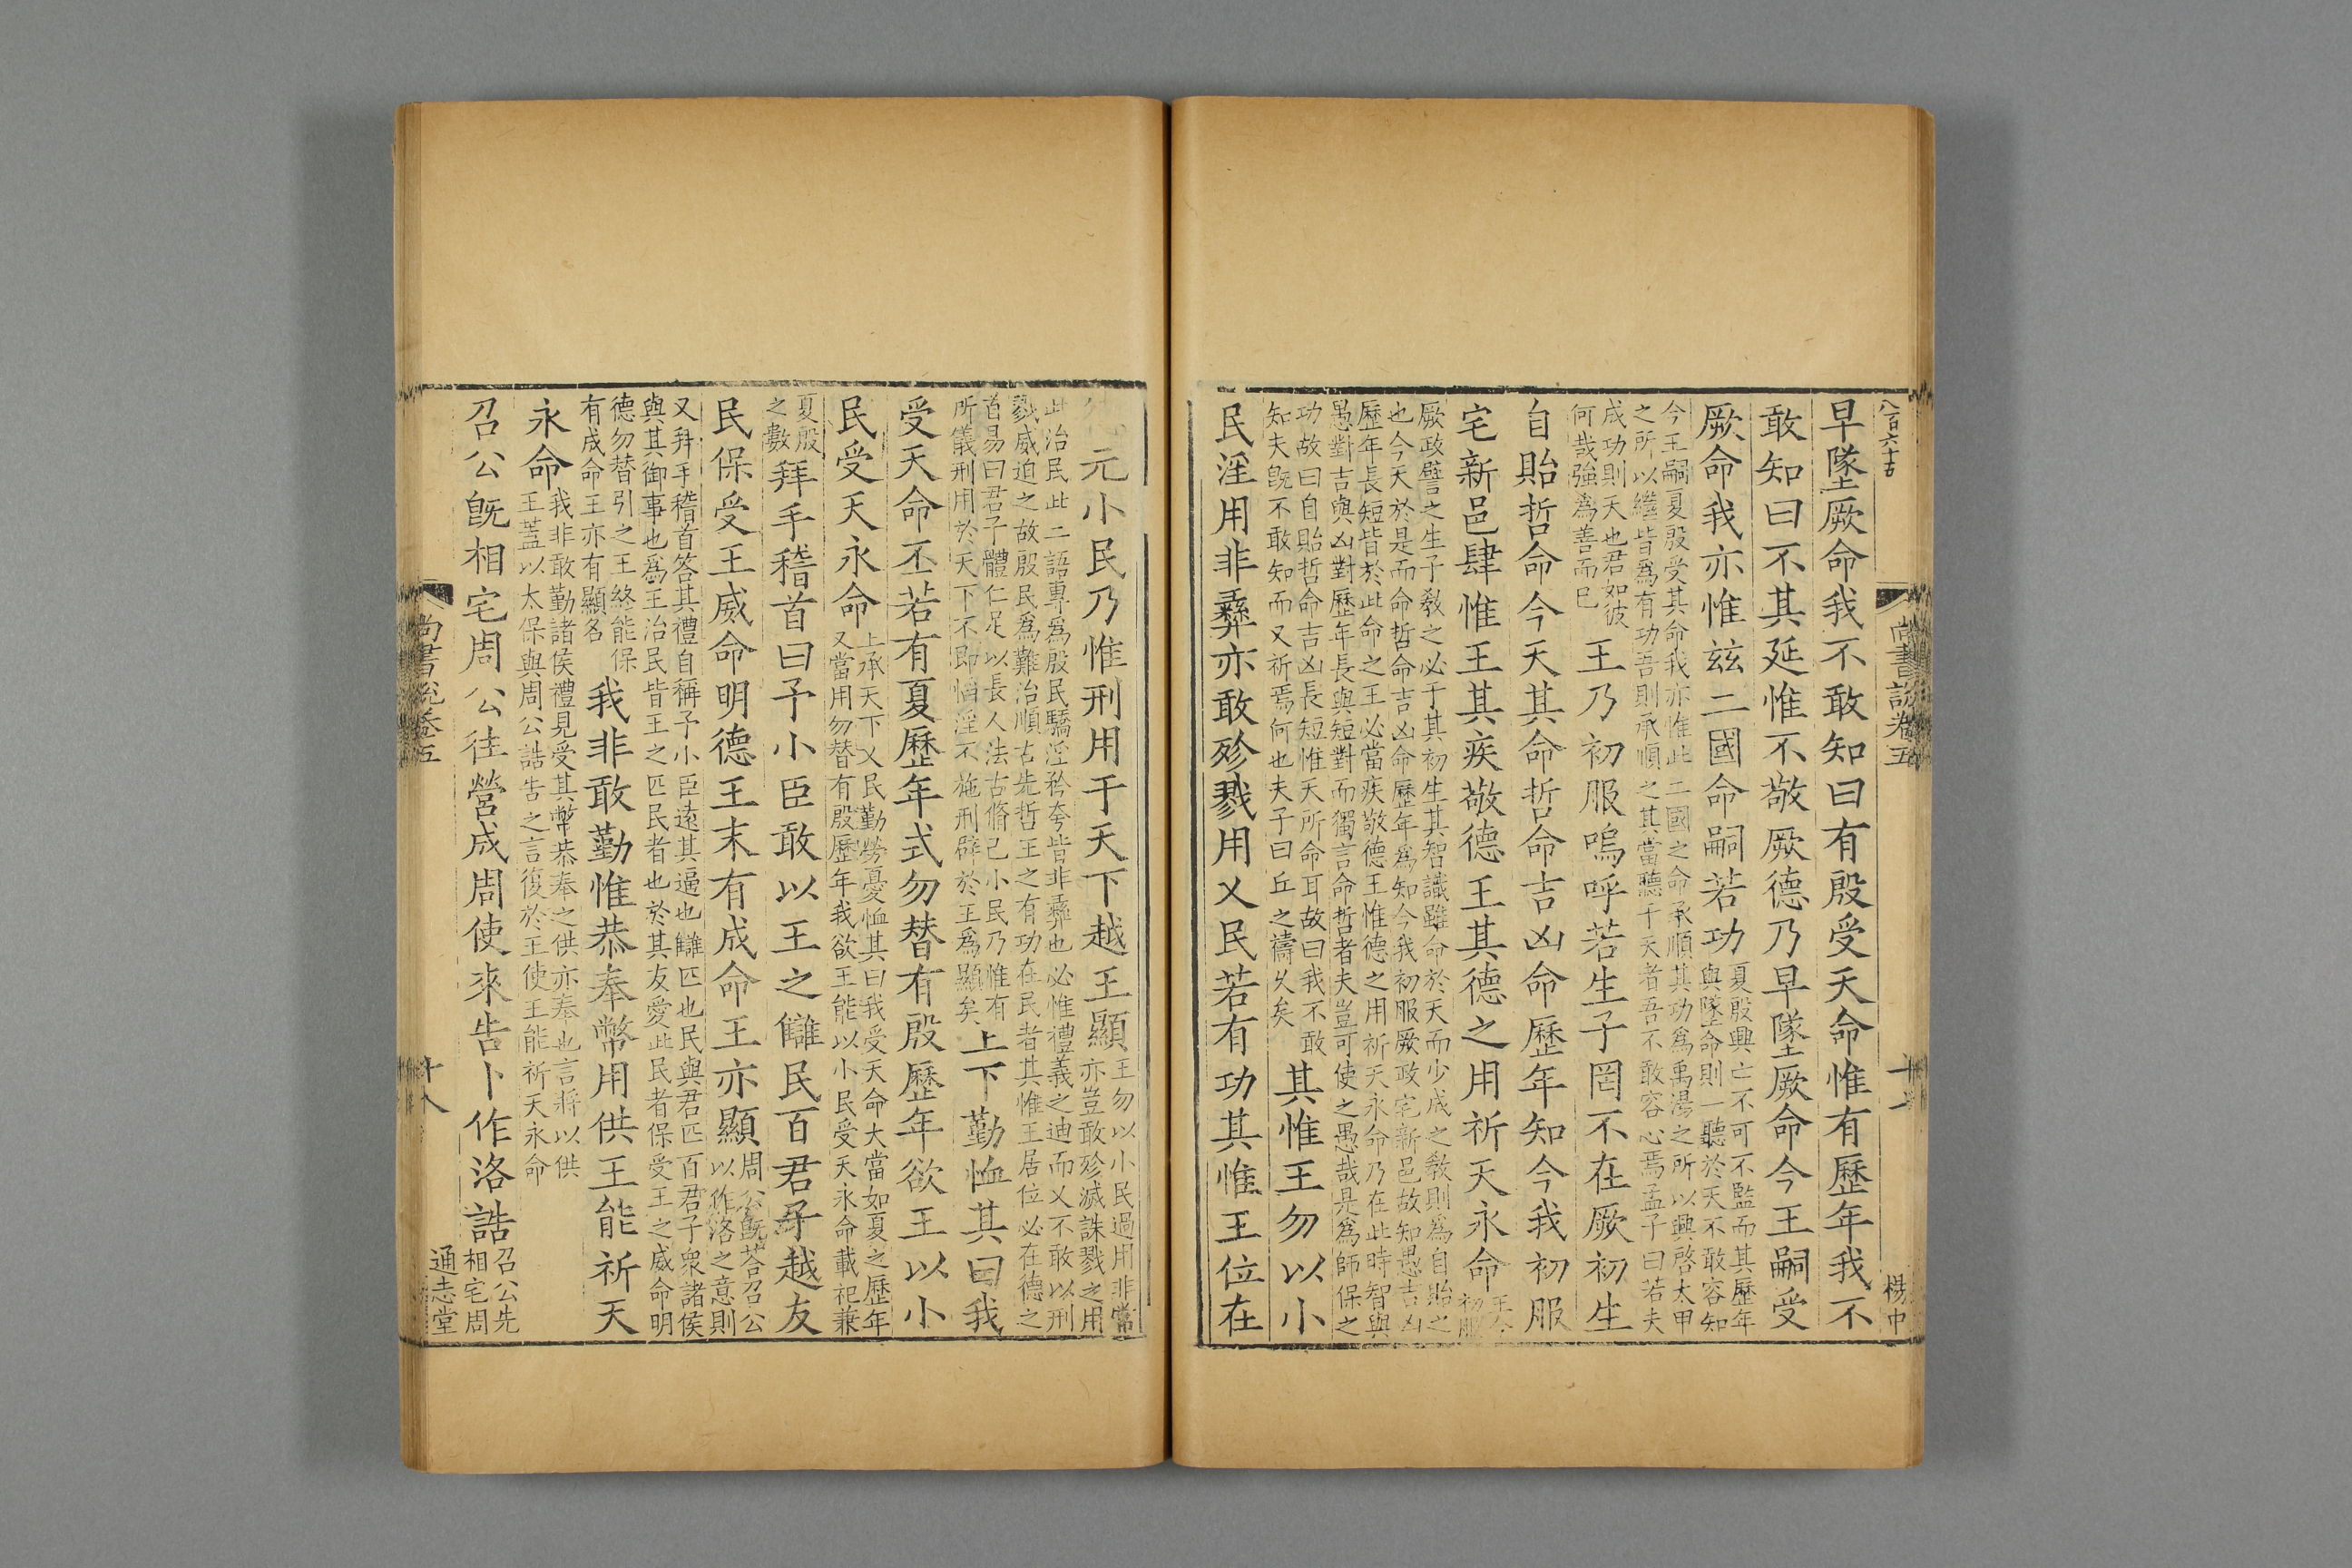 早墜厥命我不敢知曰有殷受天命惟有歷年我不
敢知曰不其延惟不敬厥德乃早墜厥命今王嗣受
厥命我亦惟玆二國命嗣若功
夏殷興亡不可不監而其歷年
與墜命則一聽於天不敢容知
今王嗣夏殷受其命我亦惟此二國之命承順其功爲禹湯之所以興啓太甲
之所以繼皆爲有功吾則承順之其當聽于天者吾不敢容心焉孟子曰若夫
成功則天也君如彼
何哉強爲善而已
王乃初服嗚呼若生子罔不在厥初生
自貽哲命今天其命哲命吉凶命歷年知今我初服
宅新邑肆惟王其疾敬德王其德之用祈天永命
厥政譬之生子敎之必于其初生其智識雖命於天而少成之敎則爲自貽之
也今天於是而命哲命吉凶命歷年爲知今我初服厥政宅新邑故知愚吉凶
歷年長短皆於此命之王必當疾敬德王惟德之用祈天永命乃在此時智與
愚對吉與凶對歷年長與短對而獨言命哲者夫豈可使之愚哉是爲師保之
功故曰自貽哲命吉凶長短惟天所命耳故曰我不敢
知夫旣不敢知而又祈焉何也夫子曰丘之禱久矣
其惟王勿以小
民淫用非彝亦敢殄戮用乂民若有功其惟王位在
元小民乃惟刑用于天下越王顯
王勿以小民過用非常
亦豈敢殄滅誅戮之用
此治民此二語專爲殷民驕淫矜夸皆非彝也必惟禮義之迪而乂不敢以刑
戮威迫之故殷民爲難治順古先哲王之有功在民者其惟王居位必在德之
首易曰君子體仁足以長人法古脩己小民乃惟有
所儀刑用於天下不卽慆淫不施刑辟於王爲顯矣
上下勤恤其曰我
受天命丕若有夏歷年式勿替有殷歷年欲王以小
民受天永命
上承天下乂民勤勞憂恤其曰我受天命大當如夏之歷年
又當用勿替有殷歷年我欲王能以小民受天永命載祀兼
夏殷
之數
拜手稽首曰予小臣敢以王之讎民百君子越友
民保受王威命明德王末有成命王亦顯
周公旣荅召公
以作洛之意則
又拜手稽首答其禮自稱予小臣遠其逼也讎匹也民與君匹百君子衆諸侯
與其御事也爲王治民皆王之匹民者也於其友愛此民者保受王之威命明
德勿替引之王終能保
有成命王亦有顯名
我非敢勤惟恭奉幣用供王能祈天
永命
我非敢勤諸侯禮見受其幣恭奉之供亦奉也言將以供
王蓋以太保與周公誥告之言復於王使王能祈天永命
召公旣相宅周公往營成周使來告卜作洛誥
召公先
相宅周
八百六十五
尚書說卷五
楊中
尚書說卷五
十八
通志堂